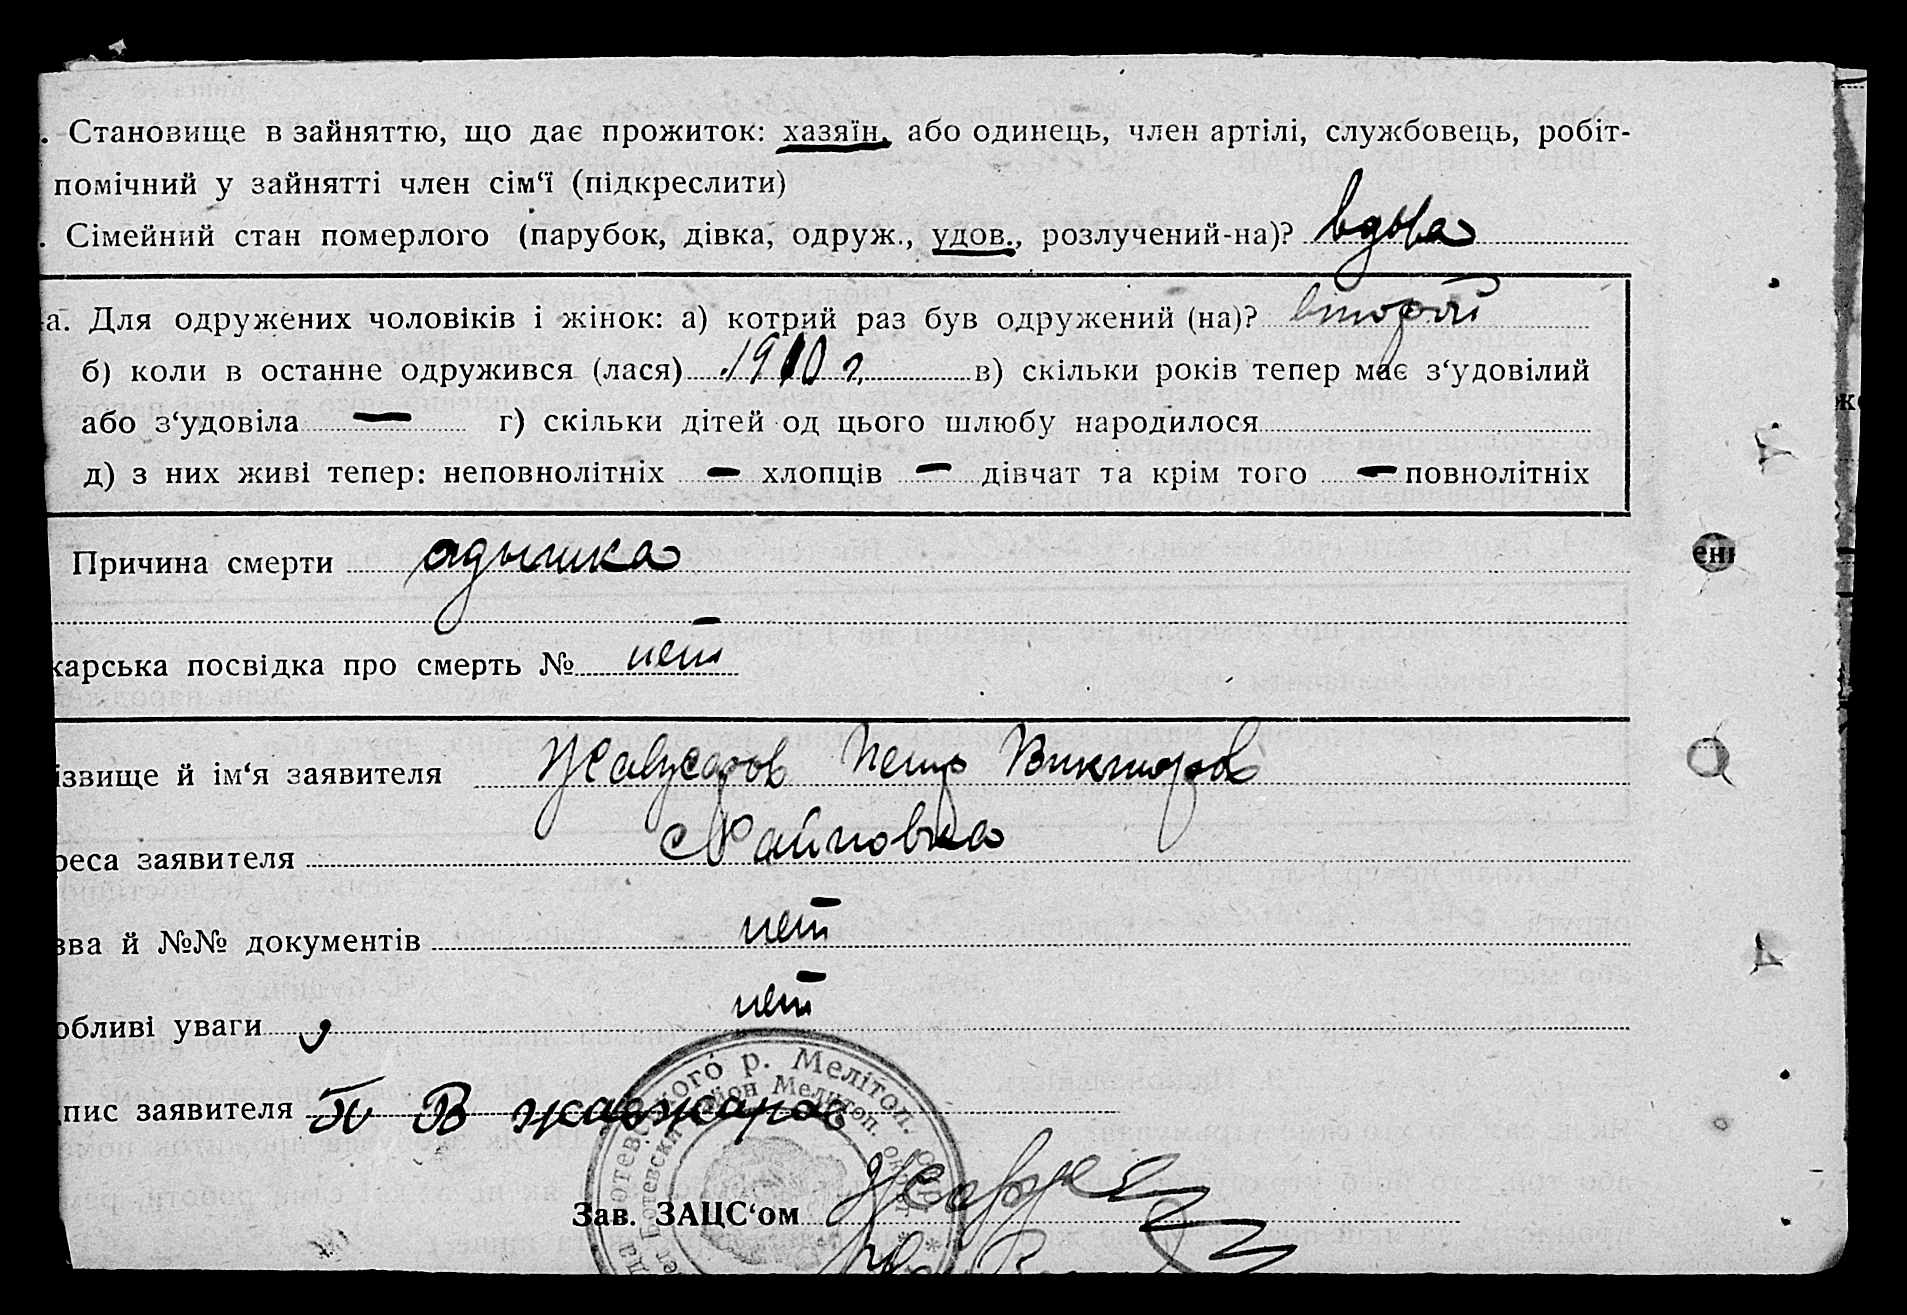 . Становище в зайняттю, що дає прожиток: хазяїн, або одинець, член артілі, службовець, робіт-
помічний у зайнятті член сім‘ї (підкреслити)
. Сімейний стан померлого (парубок, дівка, одруж., удов., розлучений-на)? вдова
а. Для одружених чоловіків і жінок: а) котрий раз був одружений (на)? второй
б) коли в останне одружився (лася) 1910 г. в) скільки років тепер має з‘удовілий
або з‘удовіла — г) скільки дітей од цього шлюбу народилося
д) з них живі тепер: неповнолітніх — хлопців — дівчат та крім того — повнолітніх
Причина смерти адышка
карська посвідка про смерть № нет
ізвище й ім‘я заявителя Жавжаров Петр Викторов
реса заявителя с Райновка
зва й №№ документів нет
обливі уваги нет
пис заявителя П В жавжаров
Зав. ЗАЦС‘ом
ького р. Мелітоп.
район Мелитоп. округ